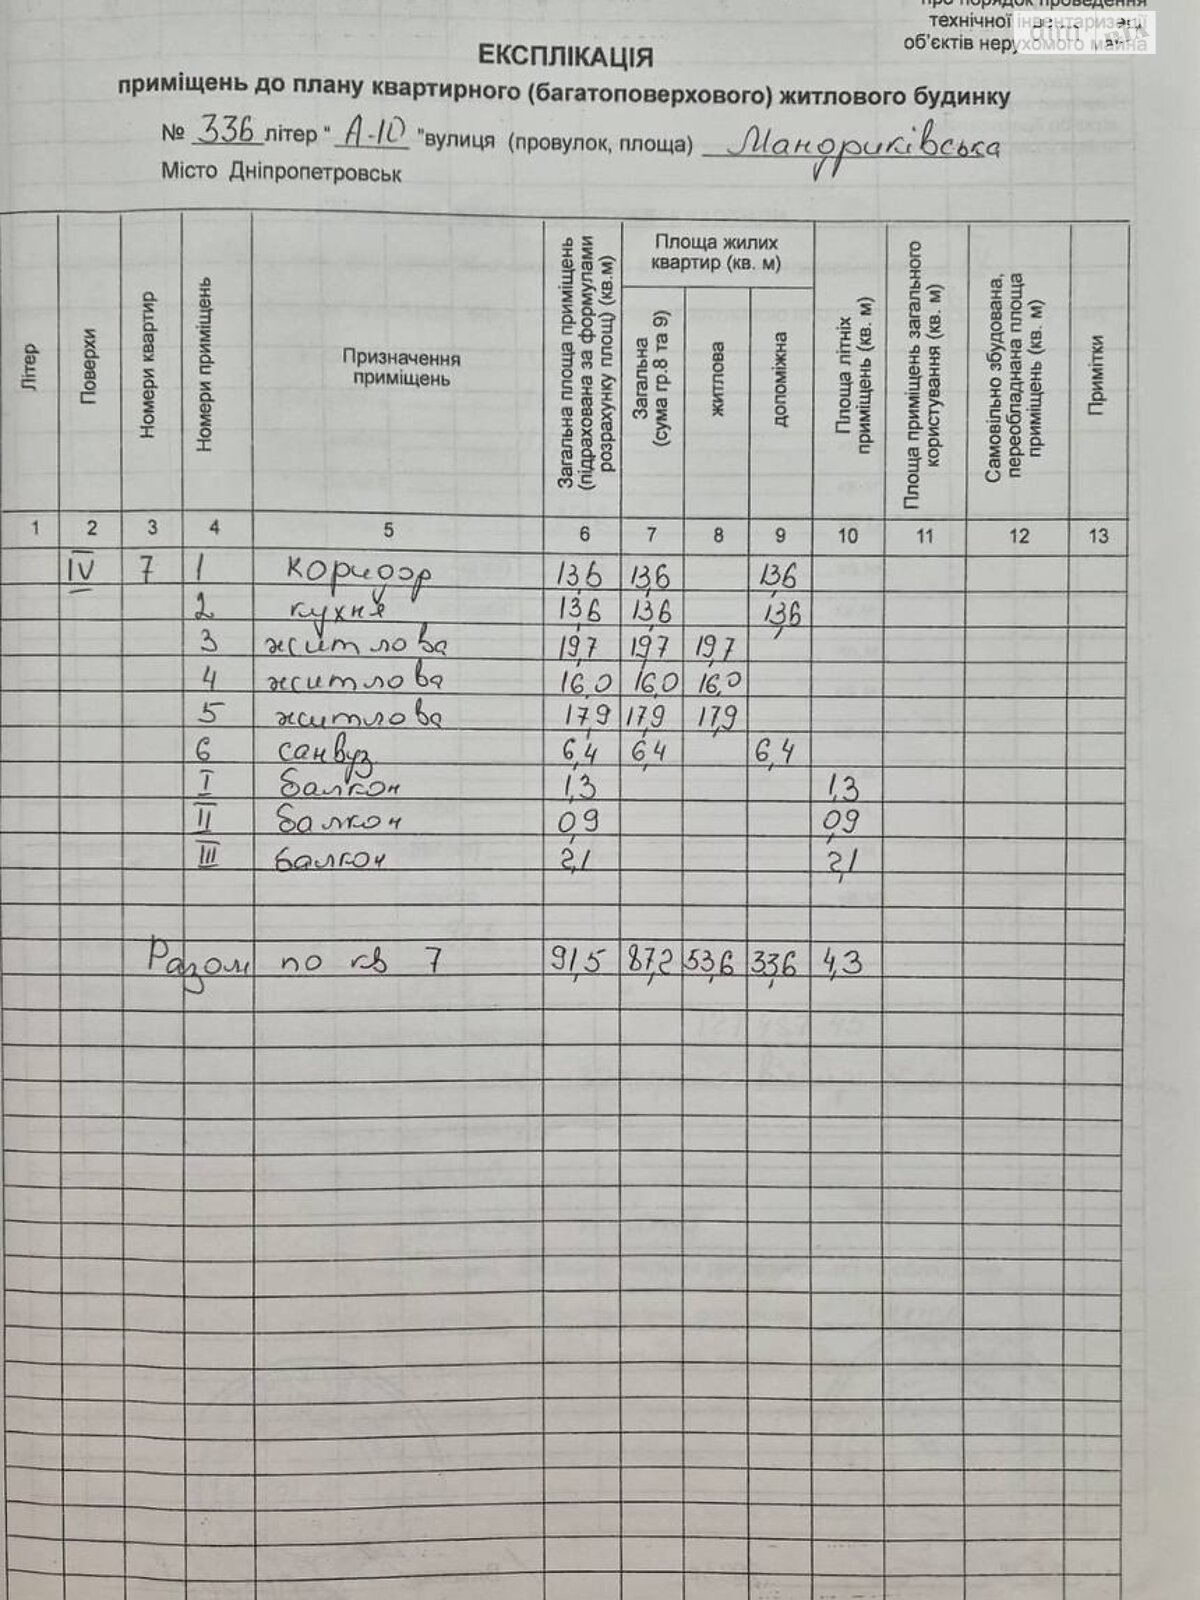 про порядок проведення
технічної інвентаризації
об'єктів нерухомого майна
ЕКСПЛІКАЦІЯ
приміщень до плану квартирного (багатоповерхового) житлового будинку
№ 336 літер " А-10 "вулиця (провулок, площа) Мандриківська
Місто Дніпропетровськ
Літер
Поверхи
Номери квартир
Номери приміщень
Призначення
приміщень
Загальна площа приміщень
(підрахована за формулами
розрахунку площ) (кв.м)
Площа жилих
квартир (кв. м)
Загальна
(сума гр.8 та 9)
житлова
допоміжна
Площа літніх
приміщень (кв. м)
Площа приміщень загального
користування (кв. м)
Самовільно збудована,
переобладнана площа
приміщень (кв. м)
Примітки
1 2 3 4 5 6 7 8 9 10 11 12 13
IV 7 1 коридор 13,6 13,6 13,6
2 кухня 13,6 13,6 13,6
3 житлова 19,7 19,7 19,7
4 житлова 16,0 16,0 16,0
5 житлова 17,9 17,9 17,9
6 санвуз 6,4 6,4 6,4
I балкон 1,3 1,3
II балкон 0,9 0,9
III балкон 2,1 2,1
Разом по кв 7 91,5 87,2 53,6 33,6 4,3